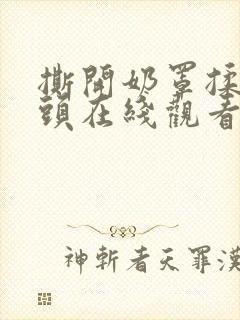 撕開奶罩揉
頭在綫觀看
神斬者天罪漢